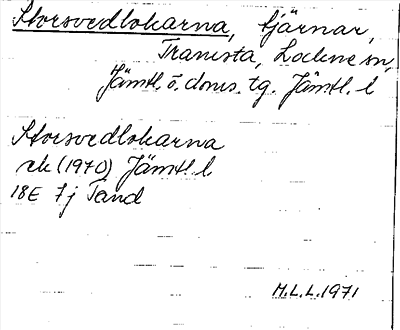 Storsvedlokarna, tjärnar,
Tramsta, Lockne sn,
Jämtl. ö. doms. tg. Jämtl. l
Storsvedlokarna
ek (1970) Jämtl. l
18E 7j Tand
M.L.L. 1971